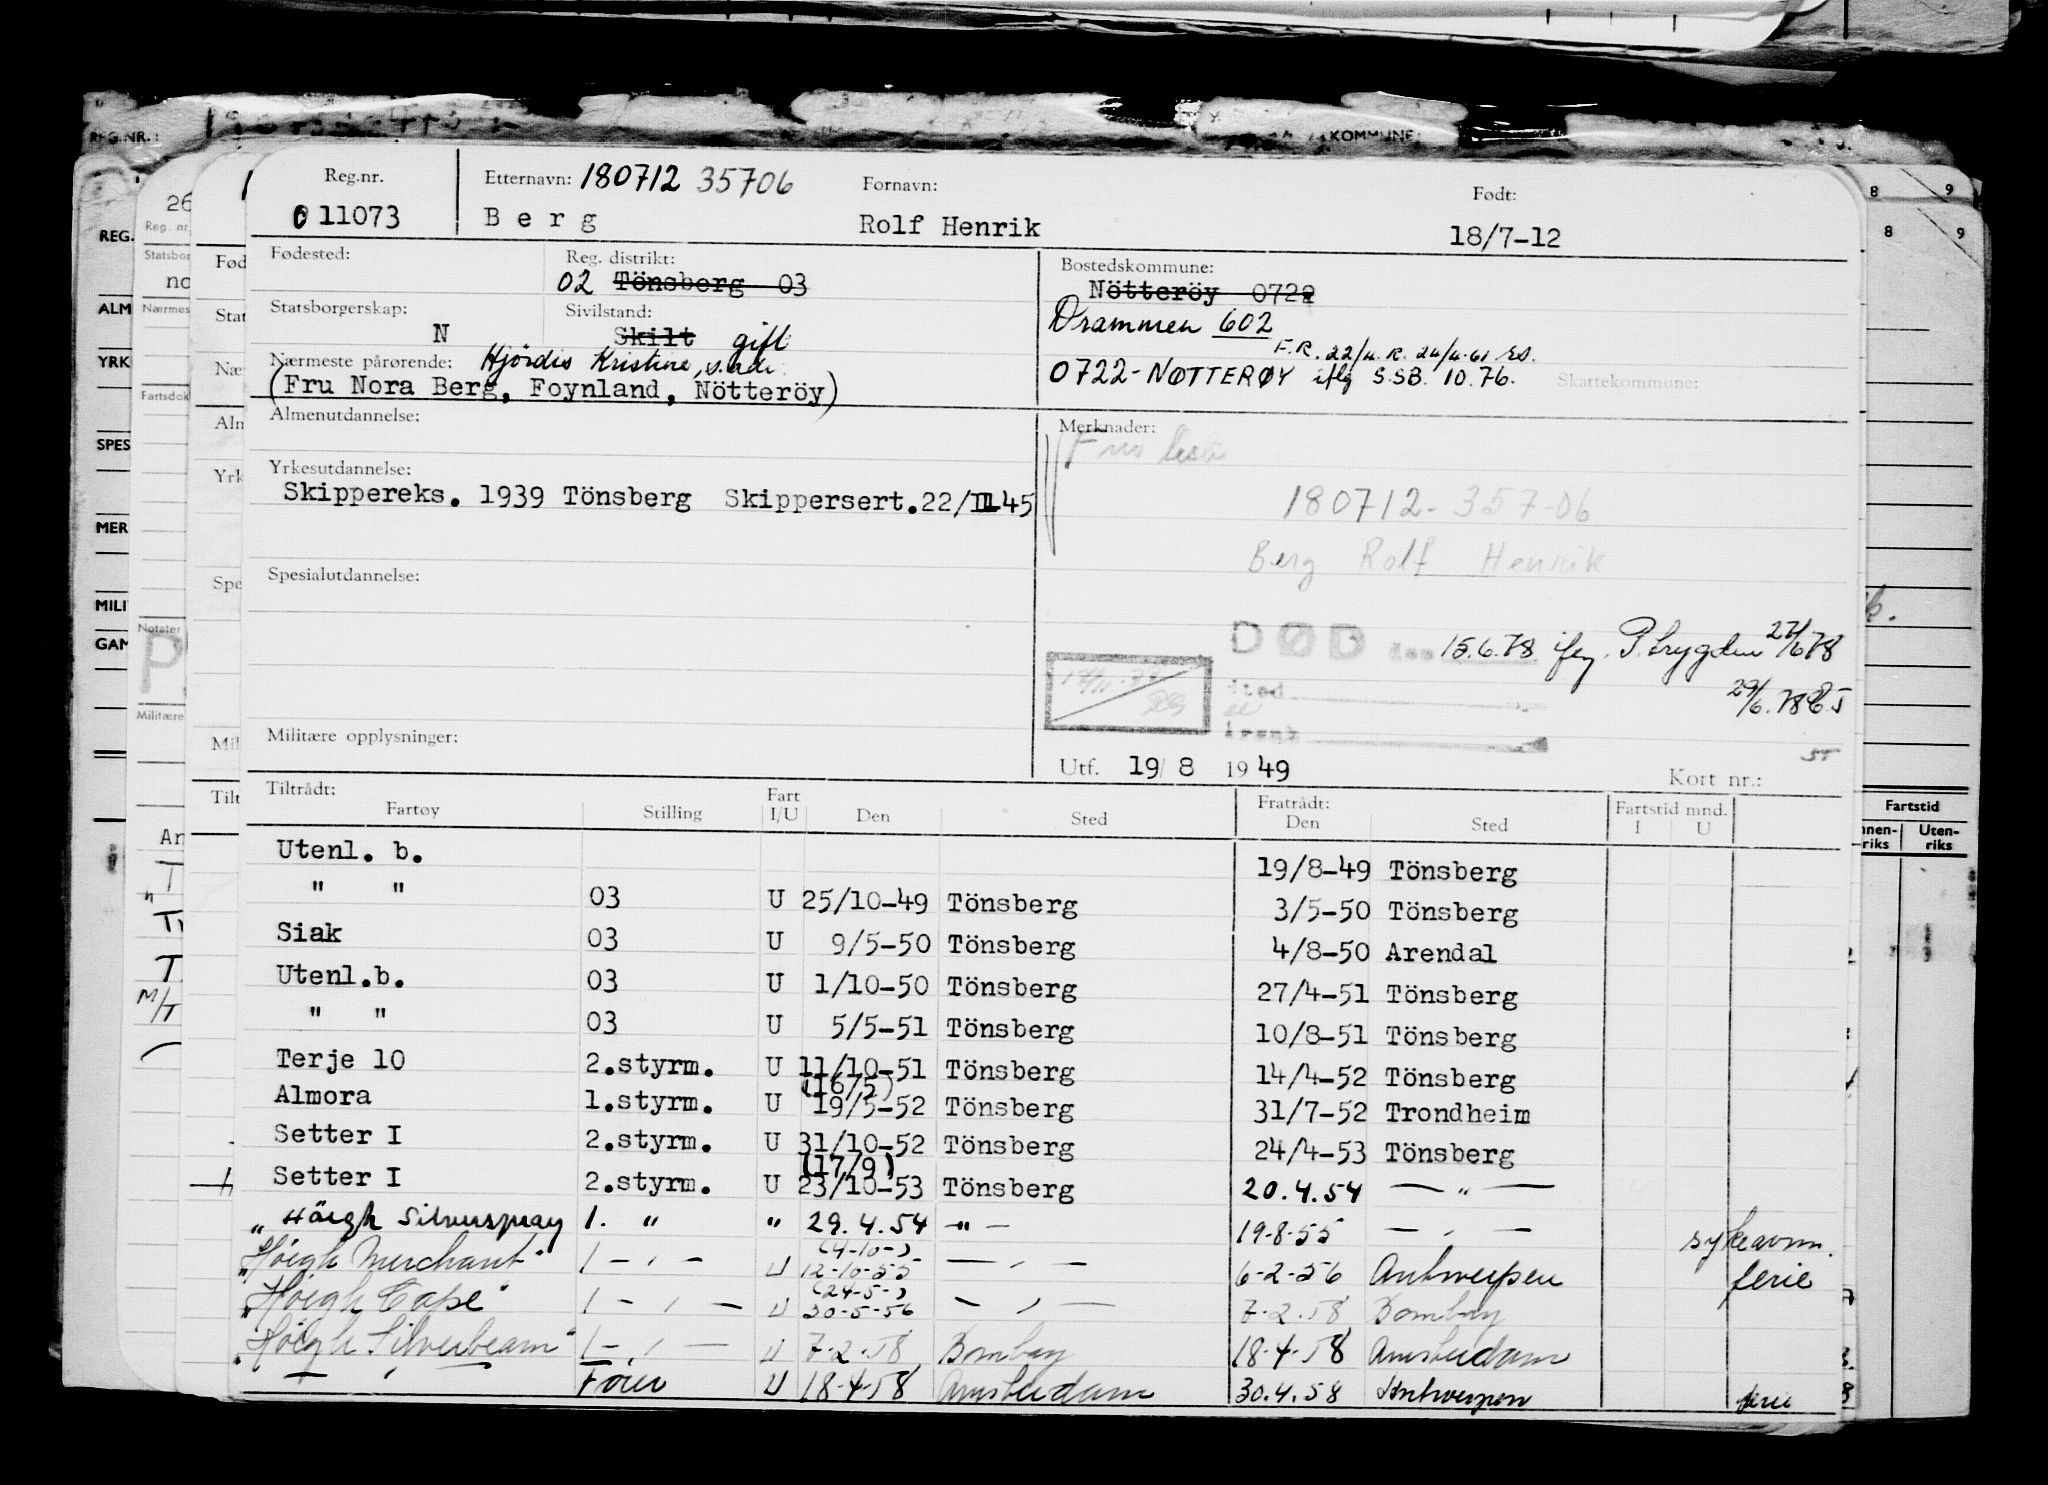 REG.NR.: KOMMUNE:
Reg.nr. Etternavn: 180712 35706 Fornavn: Født:
011073 Berg Rolf Henrik 18/7-12
Fødested: Reg. distrikt: Bostedskommune:
02 Tönsberg 03 Nötteröy 0722
Statsborgerskap: Sivilstand: Drammen 602
N Skilt gift F.R. 22/4. R. 24/4-61 ES.
Nærmeste pårørende: Hjördis Kristine, s.adr. 0722-NØTTERØY iflg S.SB. 10.76. Skattekommune:
(Fru Nora Berg, Foynland, Nötteröy)
Almenutdannelse: Merknader:
Yrkesutdannelse:
Skippereks. 1939 Tönsberg Skippersert.22/III 45
180712-357-06
Berg Rolf Henrik
Spesialutdannelse:
DØD den 15.6.78 iflg. P.trygden 27/6 78
sted
29/6.78
årsak
Militære opplysninger:
Utf. 19/ 8 1949 Kort nr.:
Tiltrådt: Fratrådt:
Fartøy Stilling Fart I/U Den Sted Den Sted Fartstid mnd. I U
Utenl. b. 19/8-49 Tönsberg
" " 03 U 25/10-49 Tönsberg 3/5-50 Tönsberg
Siak 03 U 9/5-50 Tönsberg 4/8-50 Arendal
Utenl.b. 03 U 1/10-50 Tönsberg 27/4-51 Tönsberg
" " 03 U 5/5-51 Tönsberg 10/8-51 Tönsberg
Terje 10 2.styrm. U 11/10-51 Tönsberg 14/4-52 Tönsberg
(16/5)
Almora 1.styrm. U 19/5-52 Tönsberg 31/7-52 Trondheim
Setter I 2.styrm. U 31/10-52 Tönsberg 24/4-53 Tönsberg
(17/9)
Setter I 2.styrm. U 23/10-53 Tönsberg 20.4.54 — " —
"Höegh Silverspray 1. " " 29.4.54 —"— 19-8-55 — " — sykeavm.
(4-10-)
"Höegh Merchant" 1 — " — U 12-10-55 — " — 6-2-56 Antwerpen ferie
(24-5-)
"Höegh Cape" 1 — " — U 30-5-56 — " — 7-2.58 Bombay
"Höegh Silverbeam" 1 — " — U 7-2.58 Bombay 18-4-58 Amsterdam
— " — Förer U 18-4-58 Amsterdam 30.4.58 Antwerpen ferie
Fartstid
Innenriks Utenriks